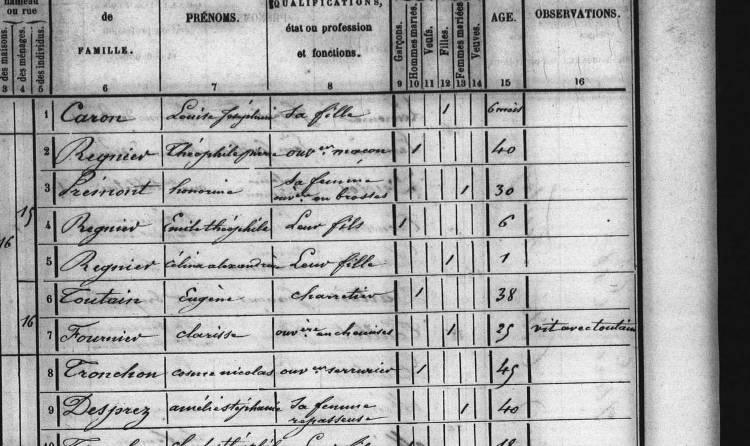 hameau QUALIFICATIONS,
ou rue de PRÉNOMS. état ou profession AGE. OBSERVATIONS.
des maisons. des ménages. des individus. FAMILLE. et fonctions. Garçons. Hommes mariés. Veufs. Filles. Femmes mariées. Veuves.
3 4 5 6 7 8 9 10 11 12 13 14 15 16
1 Caron Louise Joséphine Sa fille 1 6 mois
2 Regnier Théophile pierre ouvr. macon 1 40
3 Prémont honorine Sa femme 1 30
ouvre. en brosses
15 4 Regnier Emile théophile Leur fils 1 6
16 5 Regnier Célina alexandrine Leur fille 1 1
6 Toutain Eugène charretier 1 38
16 7 Fournier clarisse ouvère en chemises 1 25 vit avec toutain
8 Tronchon cosme nicolas ouvr. serrurier 1 45
9 Desprez amélie stéphanie Sa femme 1 40
repasseuse